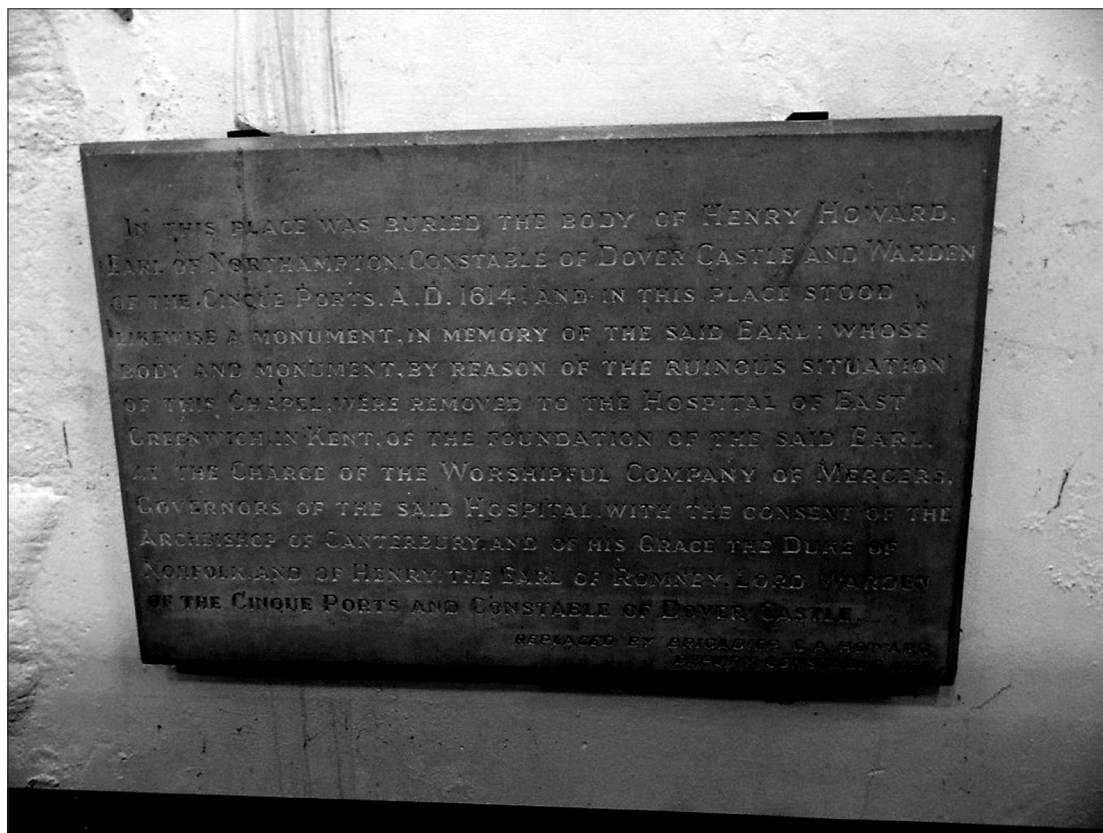 In this place was buried the body of Henry Howard,
Earl of Northampton, Constable of Dover Castle and Warden
of the Cinque Ports. A.D. 1614: and in this place stood
likewise a monument, in memory of the said Earl: whose
body and monument, by reason of the ruinous situation
of this Chapel, were removed to the Hospital of East
Greenwich in Kent, of the foundation of the said Earl,
at the Charge of the Worshipful Company of Mercers,
Governors of the said Hospital, with the consent of the
Archbishop of Canterbury, and of his Grace the Duke of
Norfolk, and of Henry, the Earl of Romney, Lord Warden
of the Cinque Ports and Constable of Dover Castle.
REPLACED BY BRIGADIER C.A. HOWARD
DEPUTY